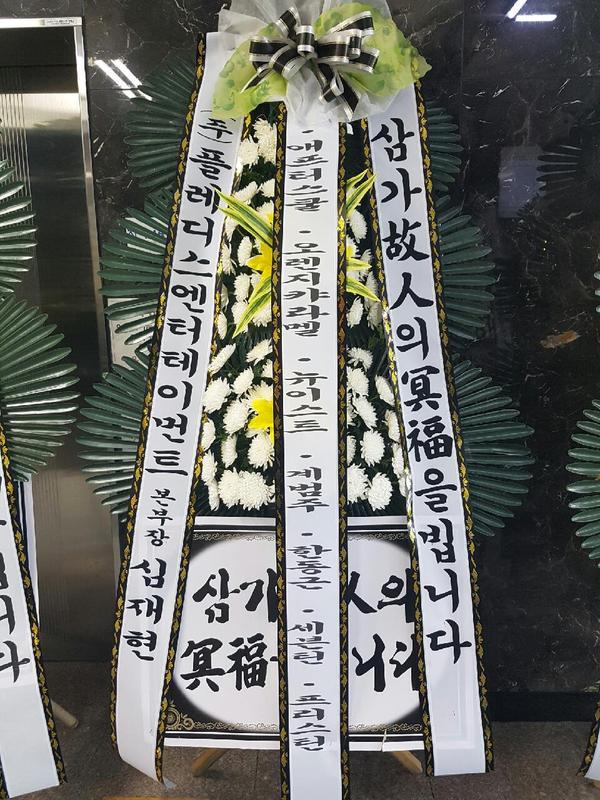 (주)플레디스엔터테이먼트 본부장 심재현
·애프터스쿨 ·오렌지캬라멜 ·뉴이스트 ·계범주 ·한동근 ·세븐틴 ·프리스틴
삼가故人의冥福을빕니다
삼가 人의
冥福 니다
니다